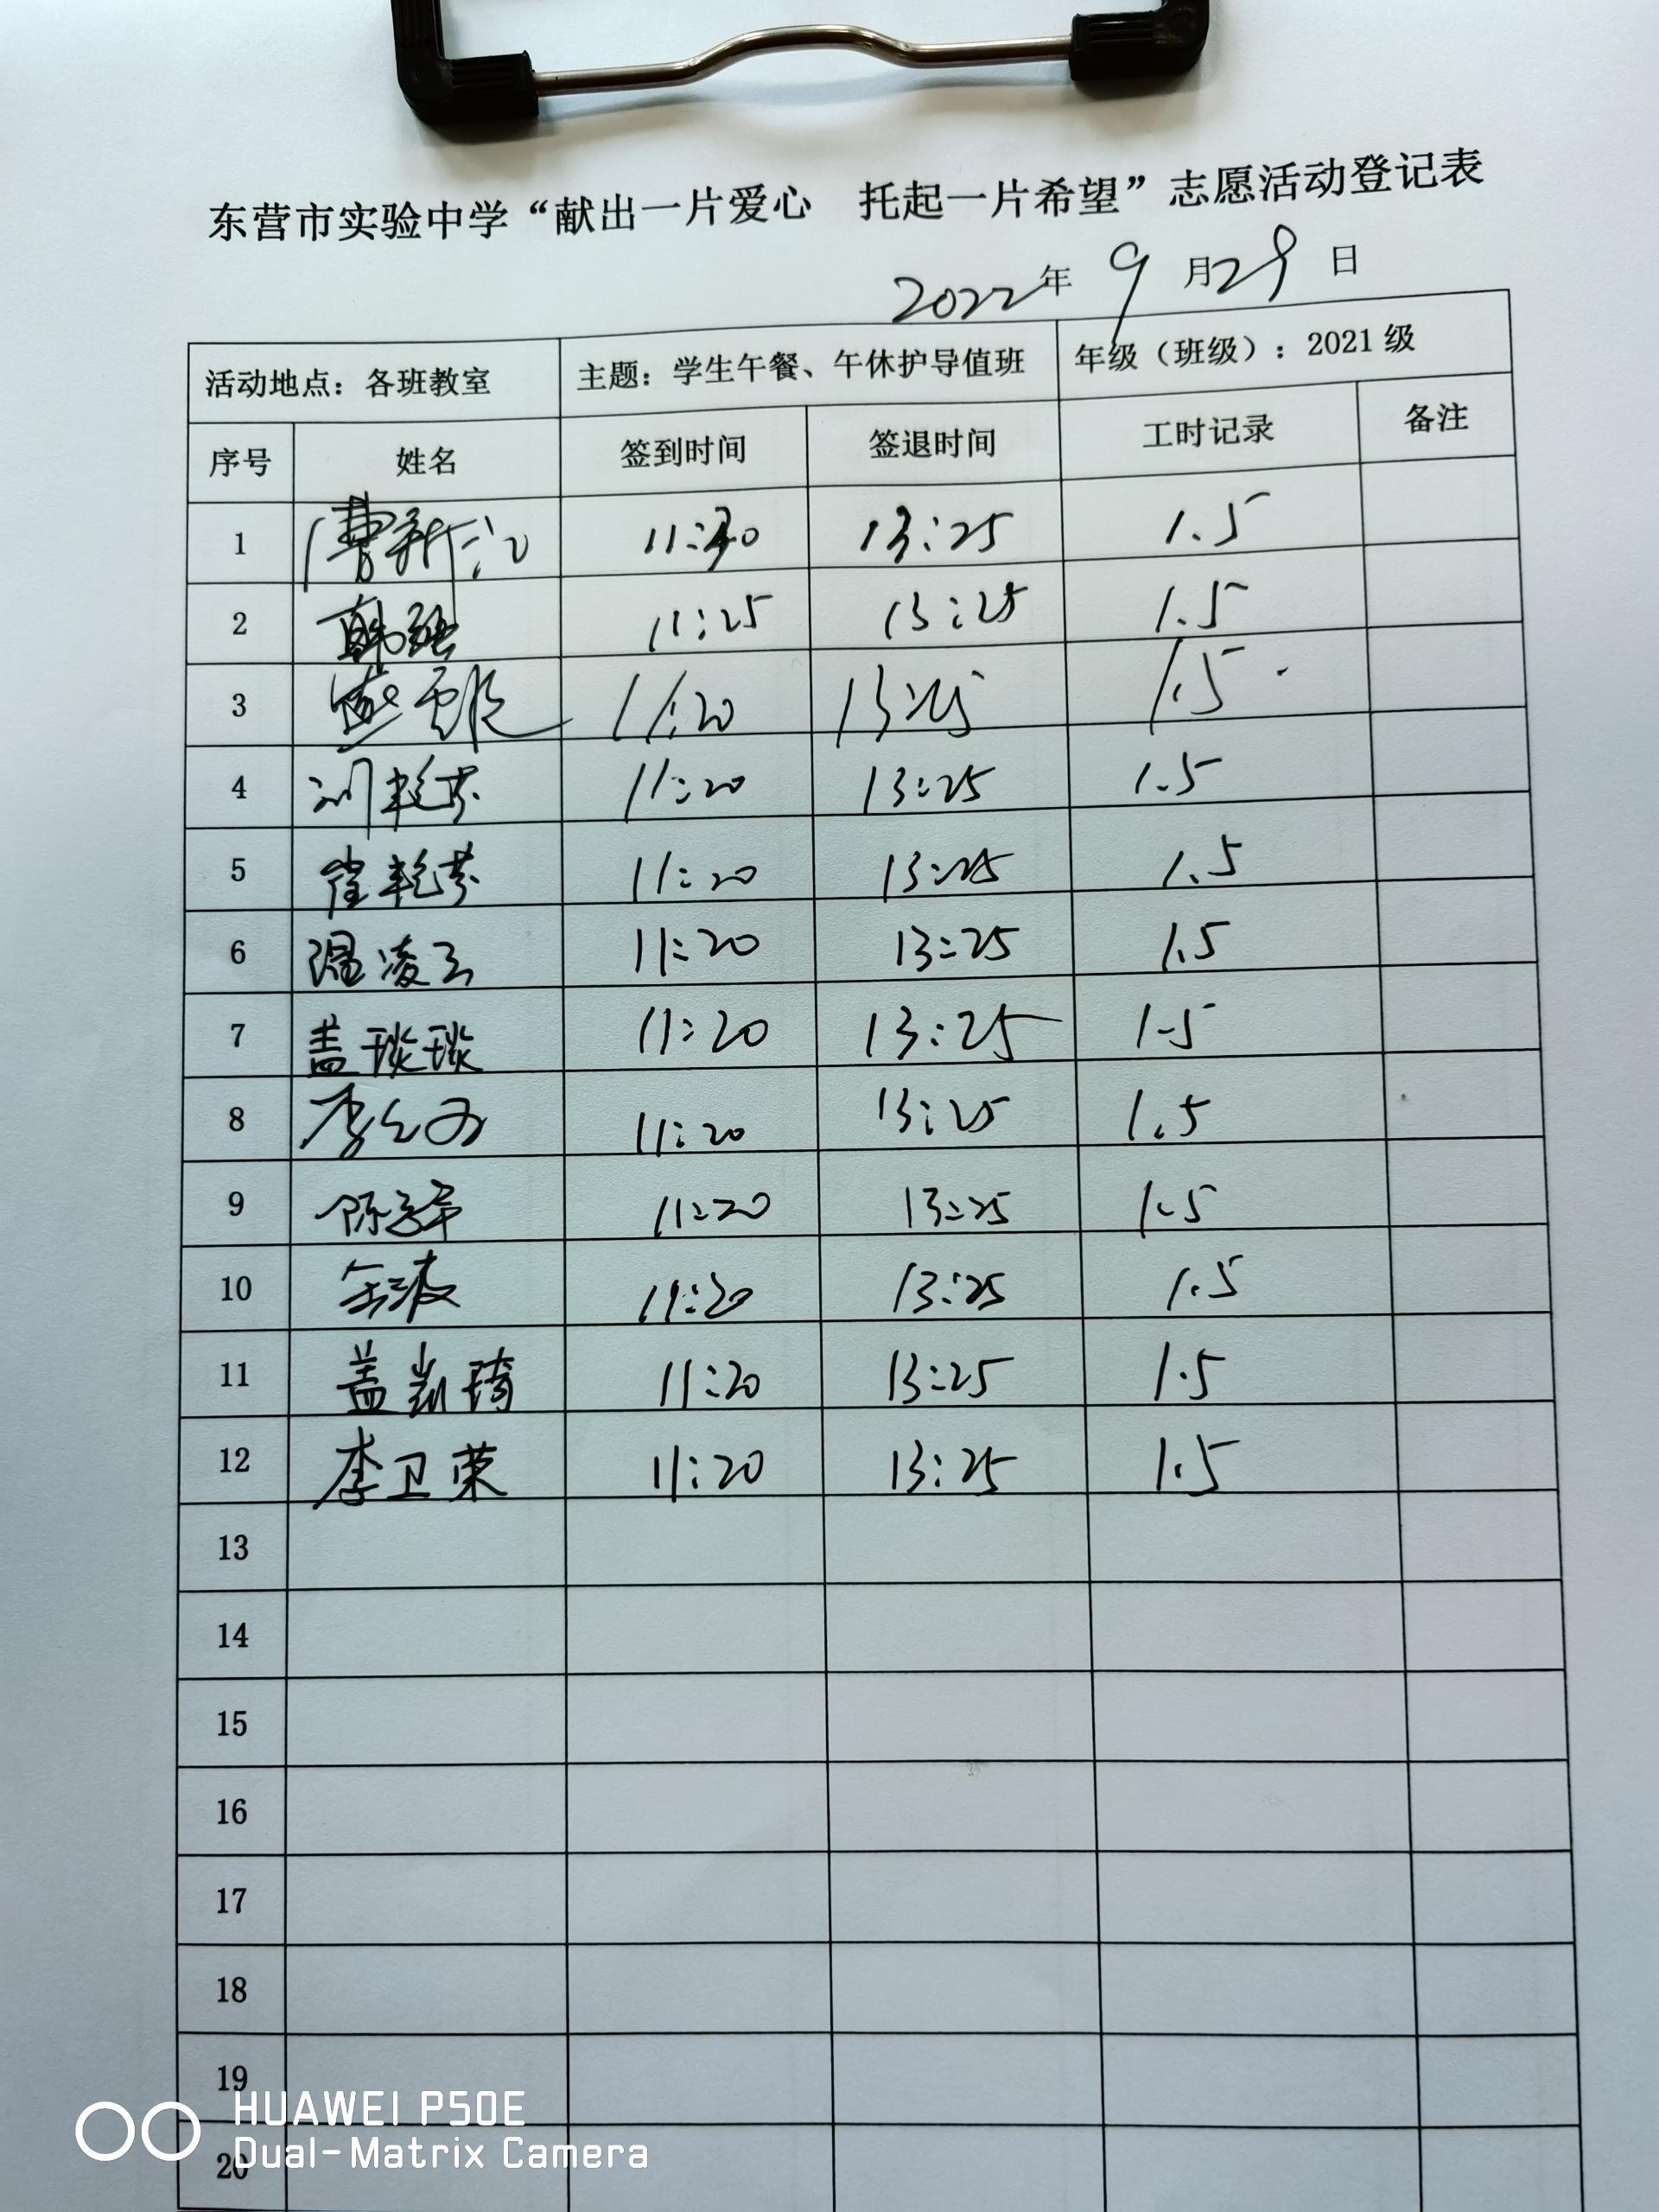 东营市实验中学“献出一片爱心 托起一片希望”志愿活动登记表
2022年 9 月 29 日
活动地点：各班教室 主题：学生午餐、午休护导值班 年级（班级）：2021 级
序号 姓名 签到时间 签退时间 工时记录 备注
1 曹新 13:25 1.5
2 韩 11:25 13:25 1.5
3 11:20 13:25 1.5
4 刘艳芬 11:20 13:25 1.5
5 崔艳芬 11:20 13:25 1.5
6 温凌云 11:20 13:25 1.5
7 盖琰琰 11:20 13:25 1.5
8 李 11:20 13:25 1.5
9 陈 11:20 13:25 1.5
10 波 11:20 13:25 1.5
11 盖凯琦 11:20 13:25 1.5
12 李卫荣 11:20 13:25 1.5
13
14
15
16
17
18
19
20
HUAWEI P50E
Dual-Matrix Camera